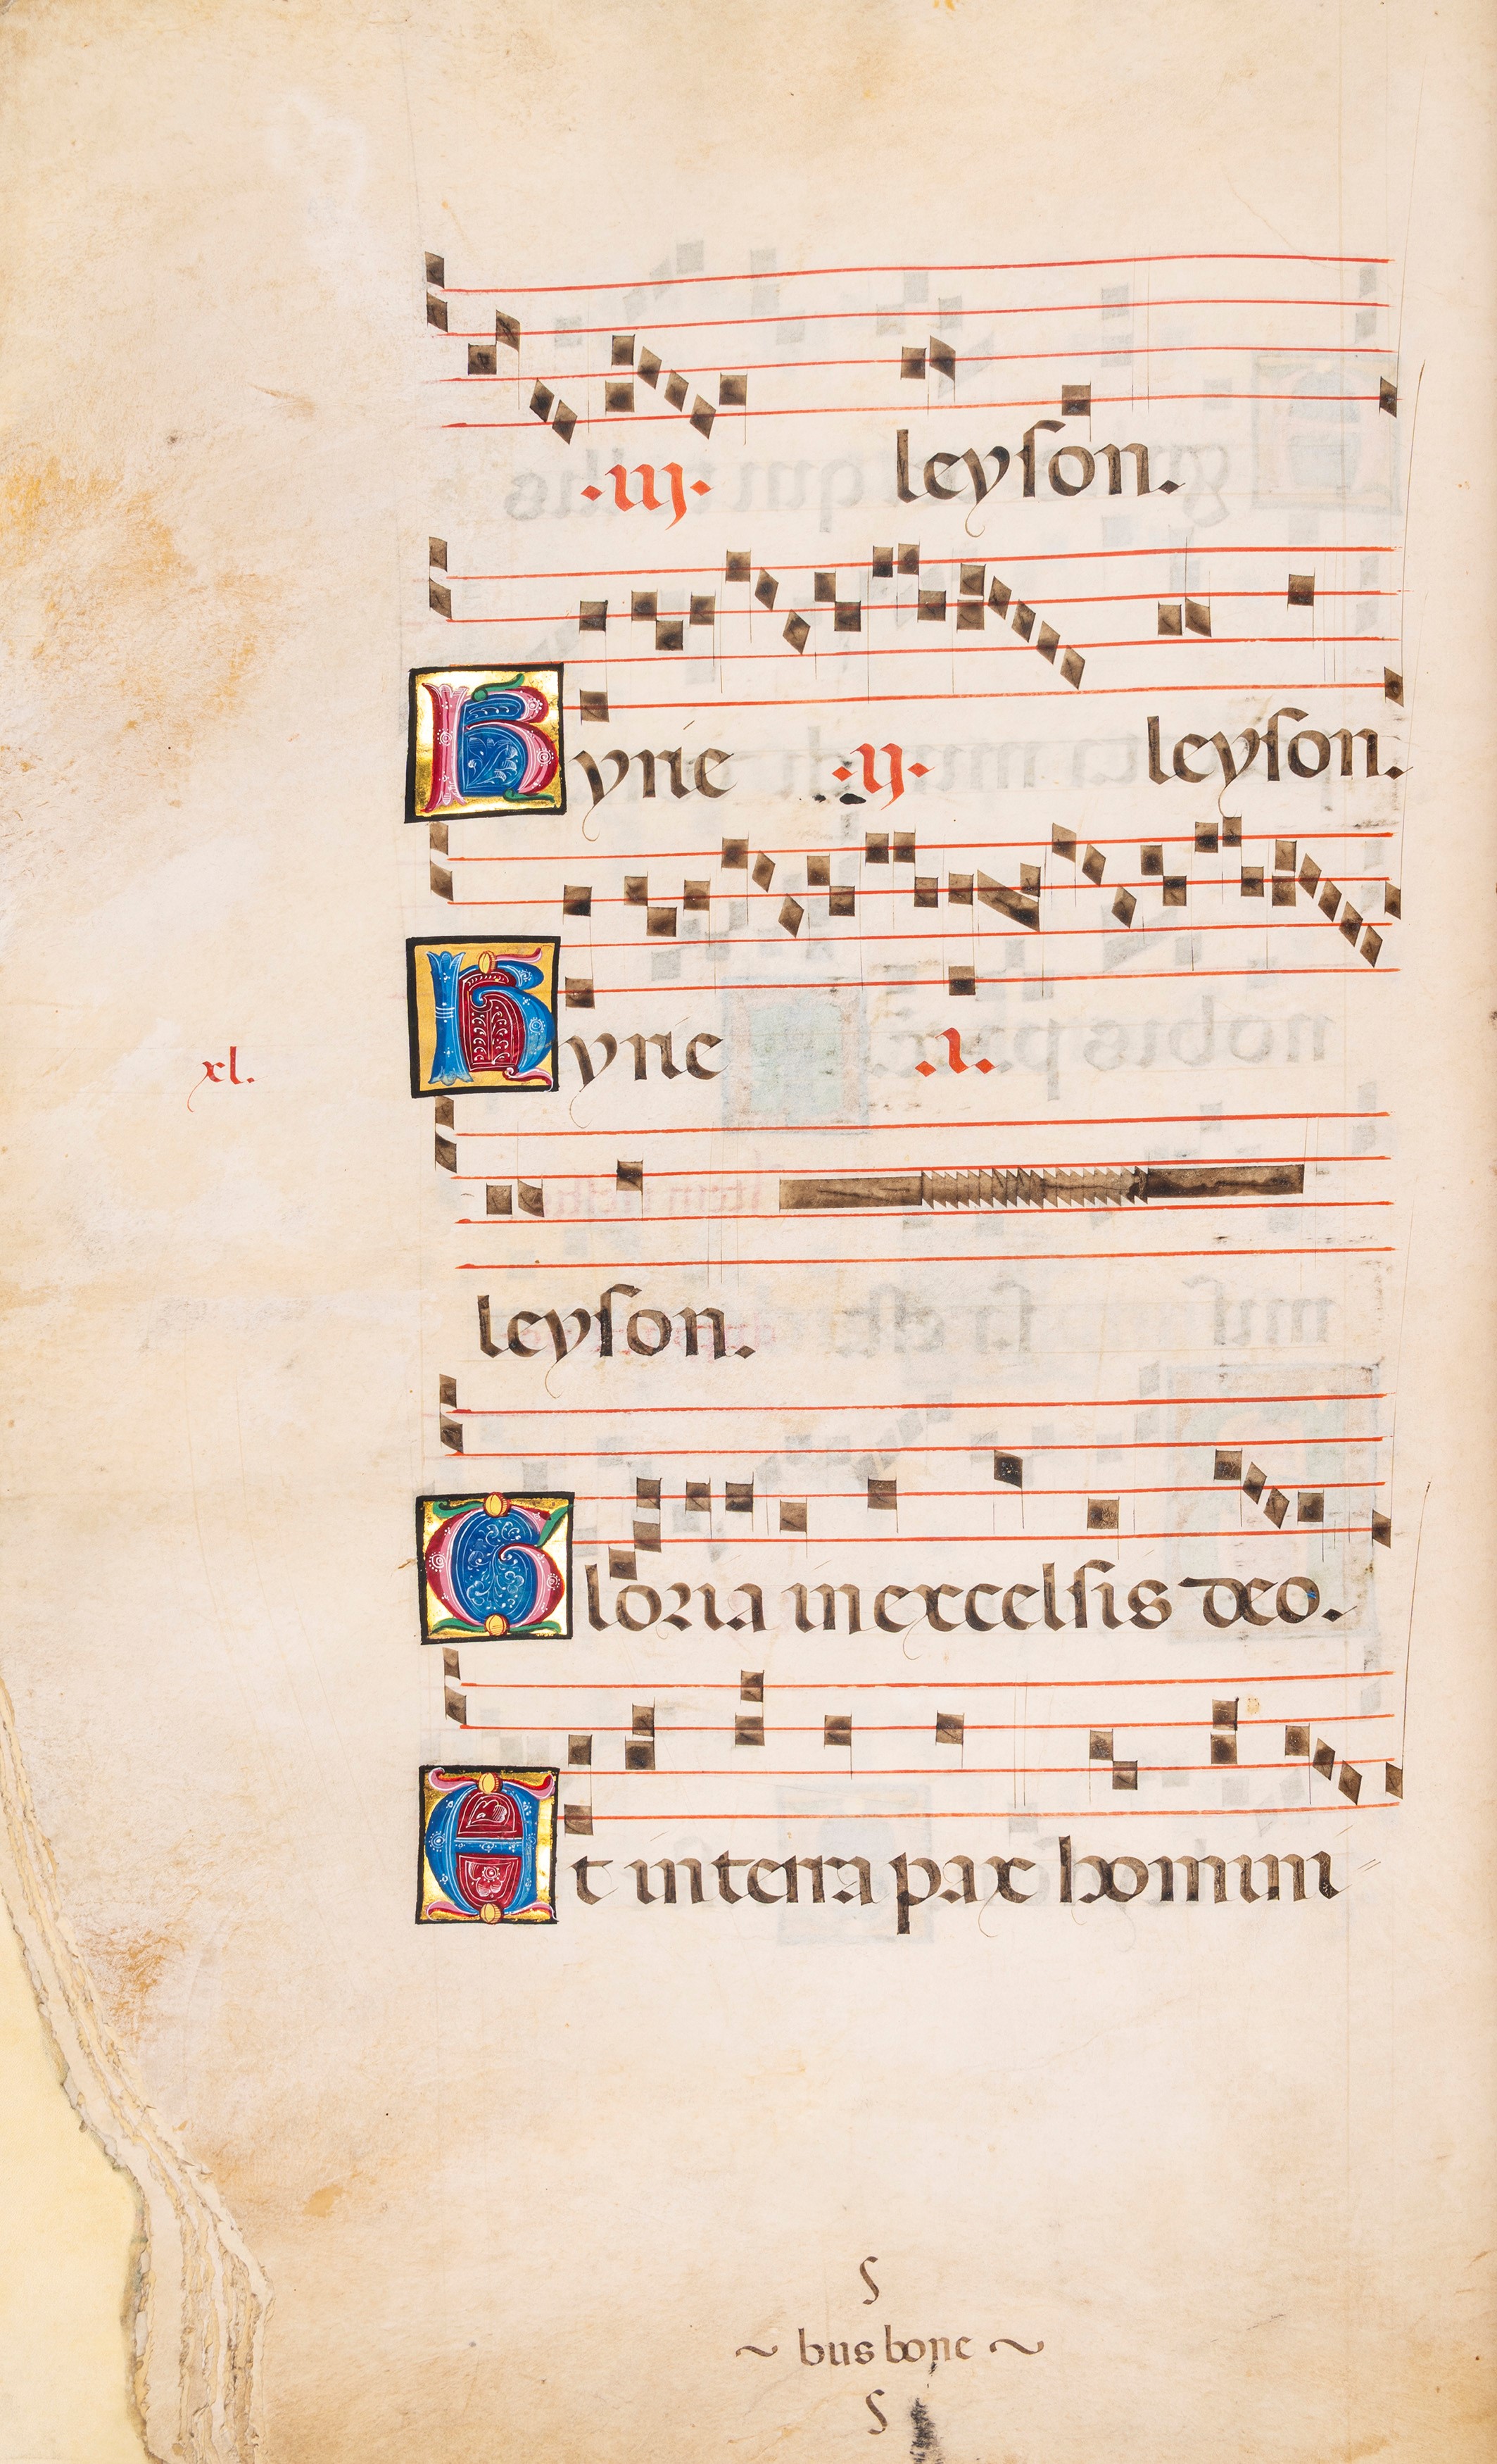 ·iij· leyſon.
Kyrie ·ij· leyſon.
Kyrie ·i·
xl.
leyſon.
Gloria in excelſis deo.
Et in terra pax homini
~ bus bone ~